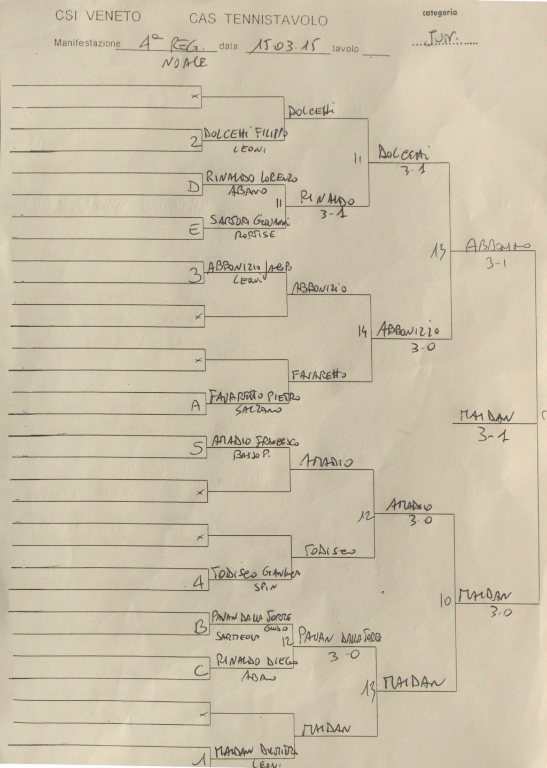 CSI VENETO CAS TENNISTAVOLO categoria
Manifestazione 4ª REG. data 15.03.15 tavolo JUN.
NOALE
x
DOLCETTI
2 DOLCETTI FILIPPO
LEONI
11 DOLCETTI
3-1
D RINALDO LORENZO
ABANO
11 RINALDO
3-1
E SARTORI
13 3-1
3 ABBONIZIO
LEONI
ABBONIZIO
x
14 ABBONIZIO
3-0
x
FAVARETTO
A FAVARETTO PIETRO
SALZANO
MAIDAN
3-1
5 AMADIO FRANCESCO
BASSO P.
AMADIO
x
12 AMADIO
3-0
x
TODISCO
4 TODISCO
SPIN
10 MAIDAN
3-0
B PAVAN DALLA TORRE
GUIDO
SARMEOLA
12 PAVAN DALLA TORRE
3-0
C RINALDO DIEGO
ABANO
13 MAIDAN
x
MAIDAN
1 MAIDAN
LEONI